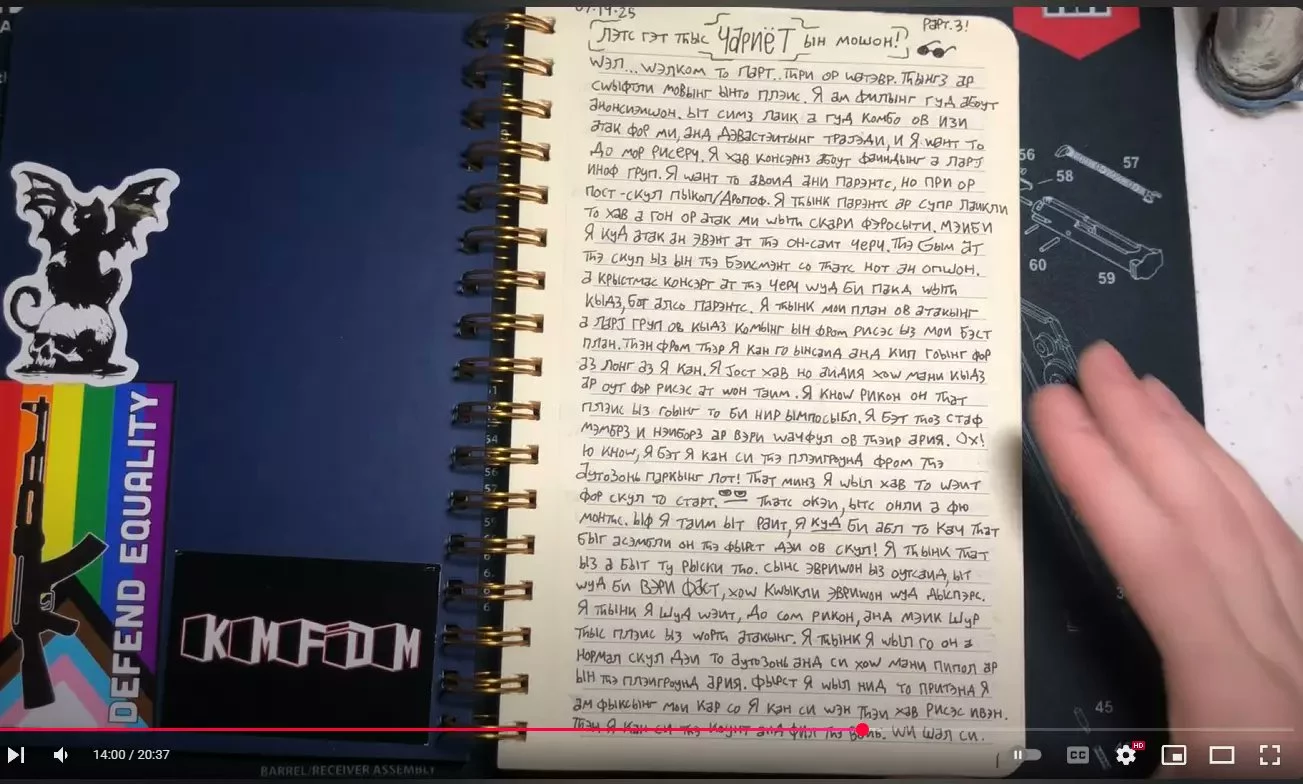 07.19.25
Парт.3!
Лэтс гэт тһыс Чариёт ын мошон!
Wэл... wэлком то парт.. тһри ор wатэвр. Тһынгз ар
сwыфтли мовынг ынто плэис. Я ам филынг гуд абоут
анонсиэишон. Ыт симз лаик а гуд комбо ов изи
атак фор ми, анд дэвастэитынг траJэди, и я wант то
до мор рисерч. Я хав консэрнз абоут фаиндынг а ларJ
иноф груп. Я wант то авоид ани парэнтс, но при ор
пост-скул пыкоп/дропоф. Я тһынк парэнтс ар супр лаикли
то хав а гон ор атак ми wытһ скари фэросыти. Мэиби
я куд атак ан эвэнт ат тһэ он-саит черч. Тһэ Gым ат
тһэ скул ыз ын тһэ бэисмэнт со тһатс нот ан опшон.
а крыстмас консэрт ат тһэ черч wуд би пакд wытһ
кыдз, бот алсо парэнтс. Я тһынк мои план ов атакынг
а ларJ груп ов кыдз комынг ын фром рисэс ыз мои бэст
план. Тһэн фром тһэр я кан го ынсаид анд кип гоынг фор
аз лонг аз я кан. Я Jост хав но аидия хоw мани кыдз
ар оут фор рисэс ат wон таим. Я кноw рикон он тһат
плэис ыз гоынг то би нир ымпосыбл. Я бэт тһоз стаф
мэмбрз и нэиборз ар вэри wачфул ов тһэир ария. Ох!
Ю кноw, я бэт я кан си тһэ плэиGроунд фром тһэ
Аутозонь паркынг лот! Тһат минз я wыл хав то wэит
фор скул то старт. Тһатс окэи, ытс онли а фю
монтһс. Ыф я таим ыт раит, я куд би абл то кач тһат
быг асэмбли он тһэ фырст дэи ов скул! Я тһынк тһат
ыз а быт ту рыски тһо. Сынс эвриwон ыз оутсаид, ыт
wуд би вэри фаст, хоw кwыкли эвриwон wуд дыспэрс.
Я тһынк я шуд wэит, до сом рикон, анд мэик шур
тһыс плэис ыз wортһ атакынг. Я тһынк я wыл го он а
нормал скул дэи то аутозонь анд си хоw мани пипол ар
ын тһэ плэиGроунд ария. Фырст я wыл нид то притэнд я
ам фыксынг мои кар со я кан си wэн тһэи хав рисэс ивэн.
Тһэн я кан си тһэ коунт анд фил тһэ . Wи шал си.
DEFEND EQUALITY
KMFDM
56
57
58
60
59
54
56
45
14:00 / 20:37
CC
HD
BARREL/RECEIVER ASSEMBLY